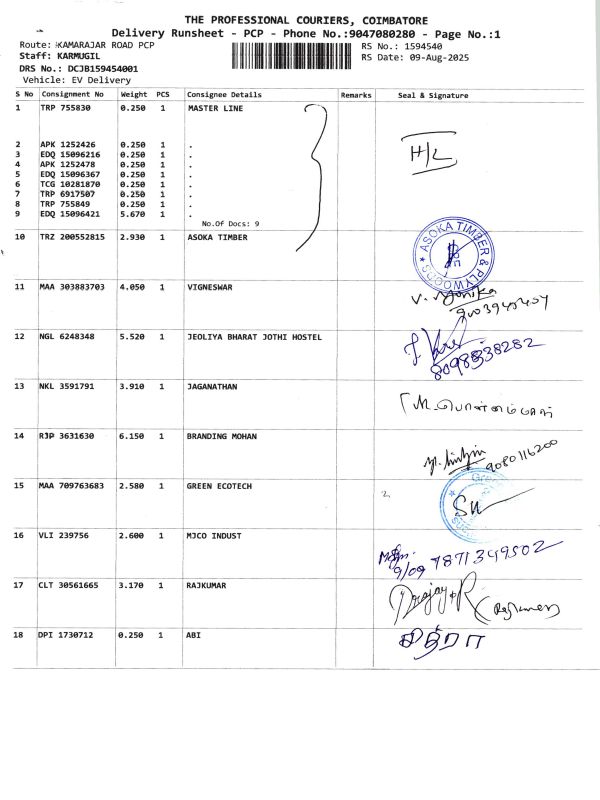 THE PROFESSIONAL COURIERS, COIMBATORE
Delivery Runsheet - PCP - Phone No.:9047080280 - Page No.:1
Route: KAMARAJAR ROAD PCP
RS No.: 1594540
Staff: KARMUGIL
RS Date: 09-Aug-2025
DRS No.: DCJB159454001
Vehicle: EV Delivery
S No Consignment No Weight PCS Consignee Details Remarks Seal & Signature
1 TRP 755830 0.250 1 MASTER LINE
H/L
2 APK 1252426 0.250 1 .
3 EDQ 15096216 0.250 1 .
4 APK 1252478 0.250 1 .
5 EDQ 15096367 0.250 1 .
6 TCG 10281870 0.250 1 .
7 TRP 6917507 0.250 1 .
8 TRP 755849 0.250 1 .
9 EDQ 15096421 5.670 1 .
No.Of Docs: 9
10 TRZ 200552815 2.930 1 ASOKA TIMBER
ASOKA TIMBER & PLYWOODS
11 MAA 303883703 4.050 1 VIGNESWAR
V.
12 NGL 6248348 5.520 1 JEOLIYA BHARAT JOTHI HOSTEL
13 NKL 3591791 3.910 1 JAGANATHAN
14 RJP 3631630 6.150 1 BRANDING MOHAN
9080116200
15 MAA 709763683 2.580 1 GREEN ECOTECH
16 VLI 239756 2.600 1 MJCO INDUST
9/09 7871349502
17 CLT 30561665 3.170 1 RAJKUMAR
18 DPI 1730712 0.250 1 ABI
சித்ரா